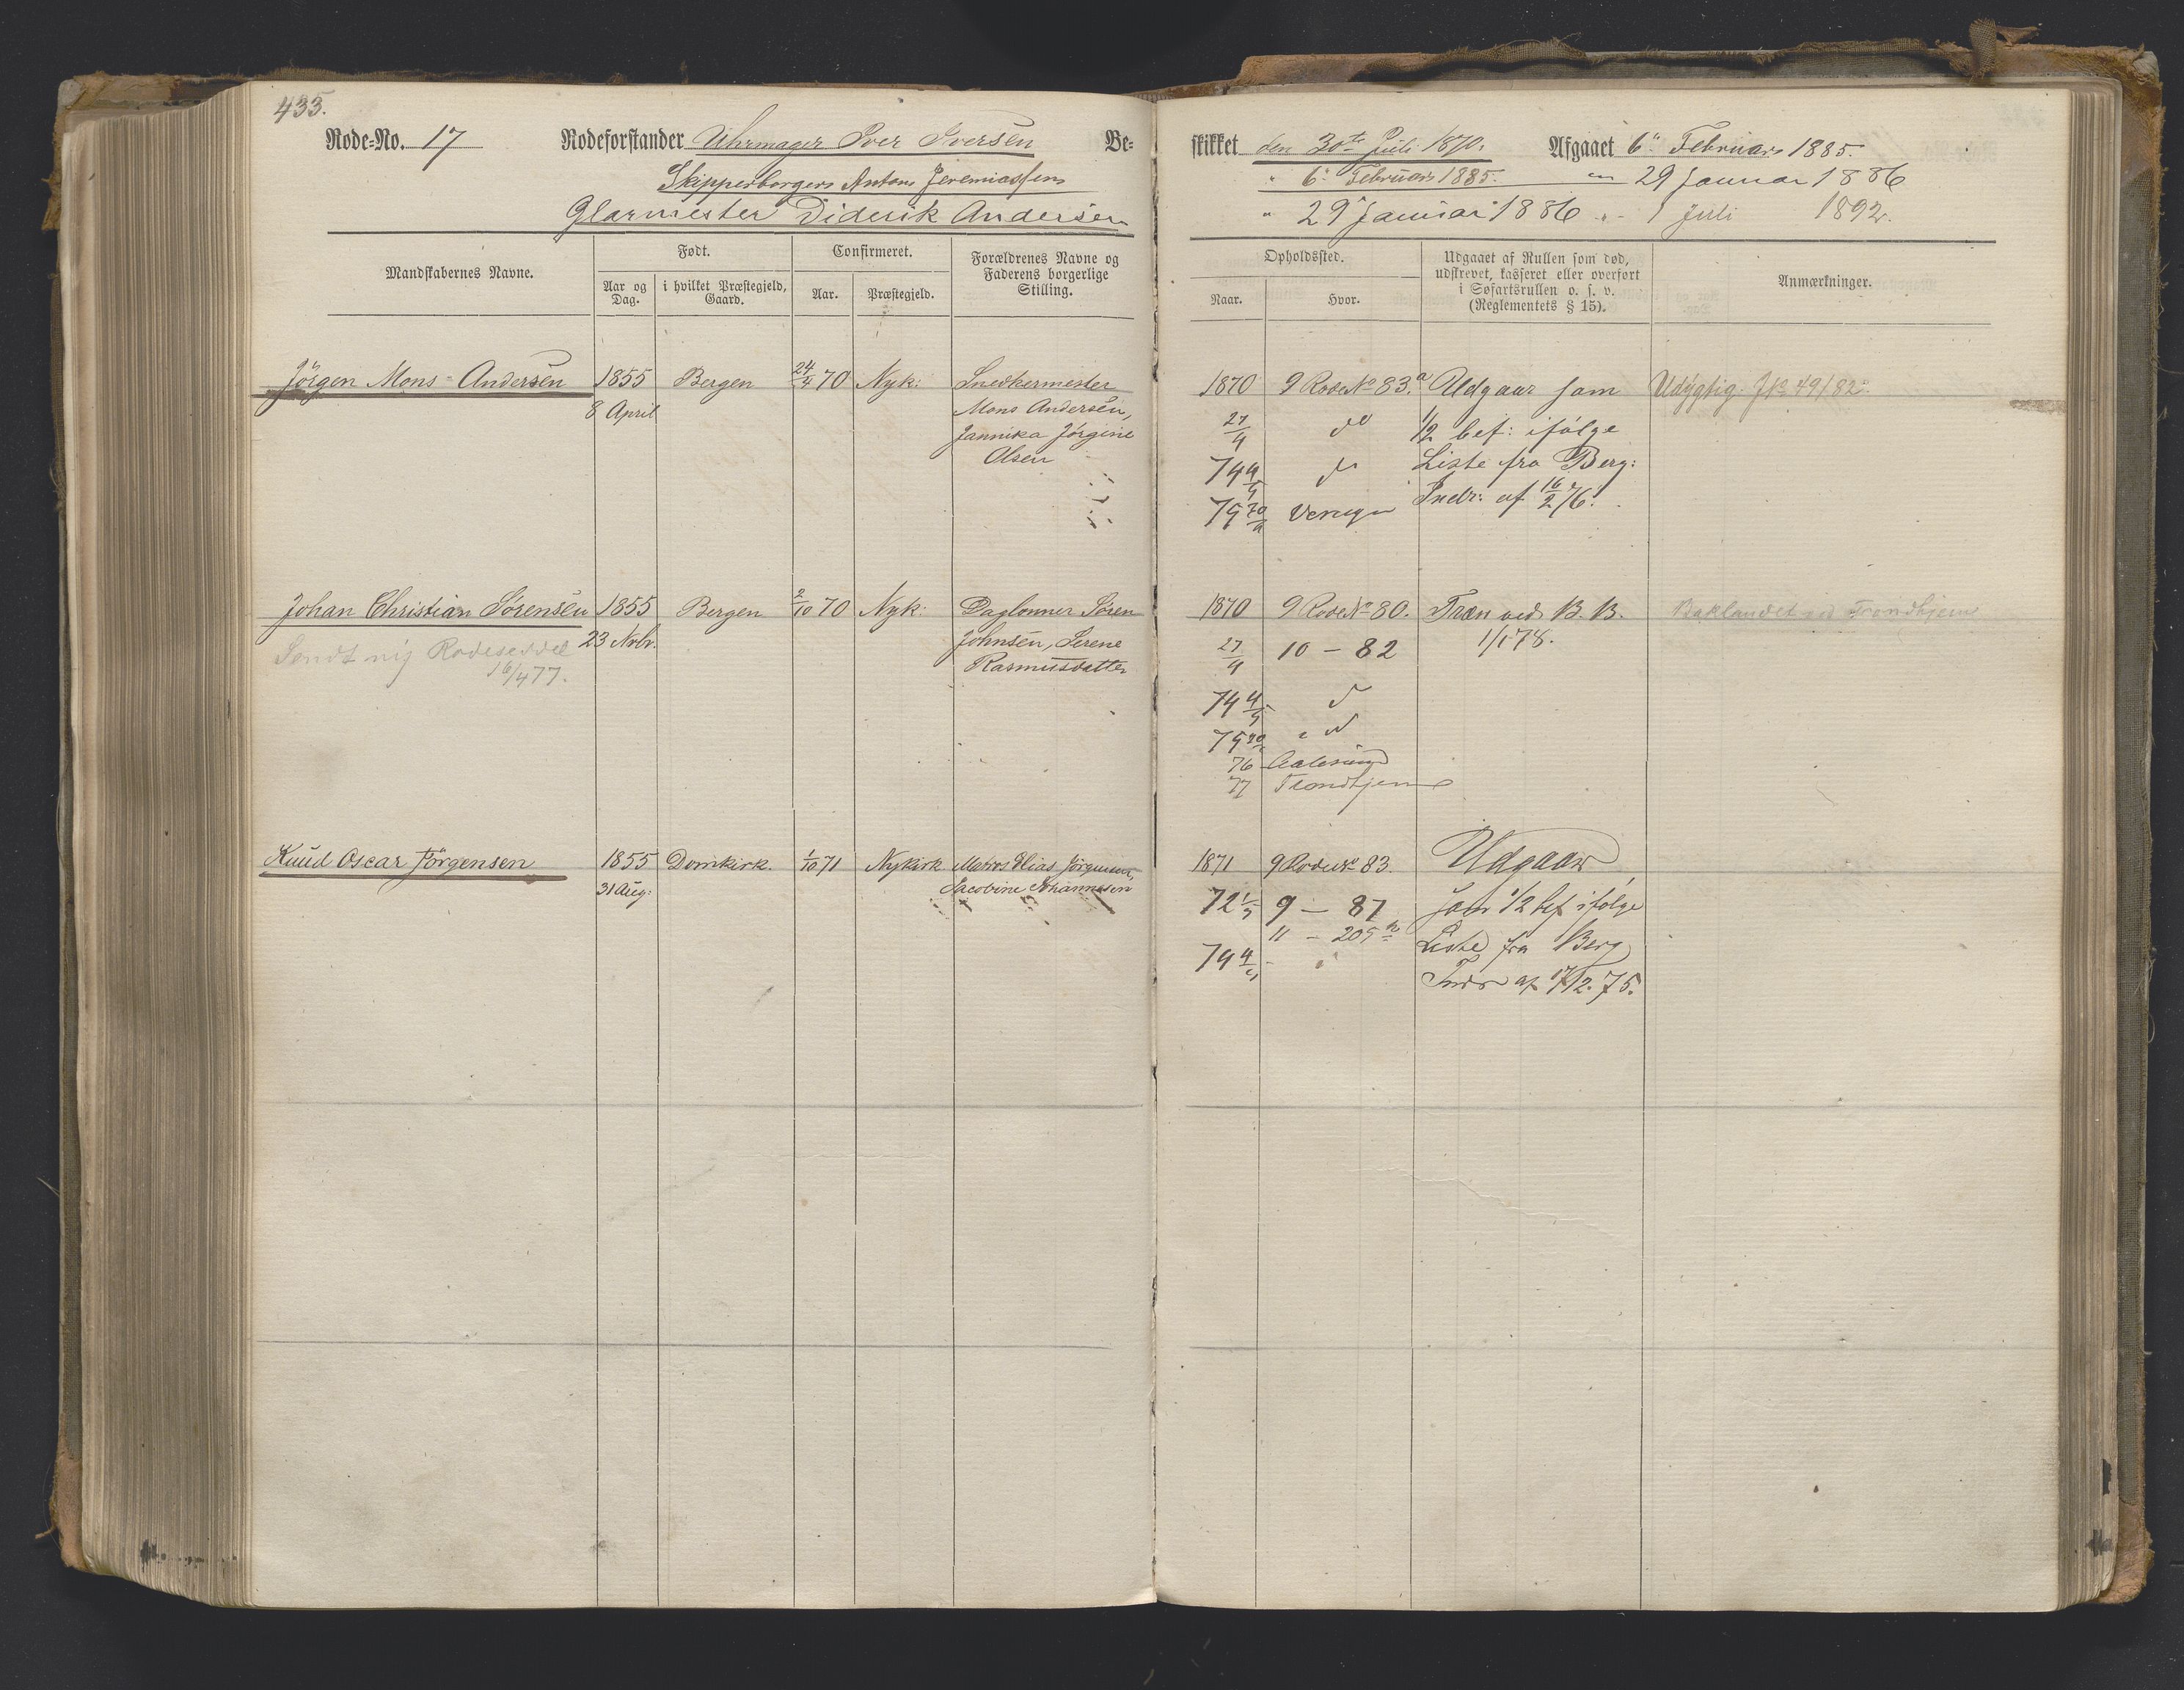 433.
Rode-No. 17 Rodeforstander Uhrmager Iver Iversen Be-
Skipperborger Anton Jeremiassen
Glarmester Diderik Andersen
Mandskabernes Navne.
Født.
Aar og Dag.
i hvilket Præstegjeld, Gaard.
Confirmeret.
Aar.
Præstegjeld.
Forældrenes Navne og
Faderens borgerlige
Stilling.
Jörgen Mons Andersen 1855 Bergen 24/4 70 Nyk: Snedkermester
8 April Mons Andersen,
Jannika Jörgine
Olsen
Johan Christian Sörensen 1855 Bergen 2/10 70 Nyk: Daglonner Sören
Sendt nij Rodeseddel 23 Nvbr. Johnsen, Serene
16/4 77. Rasmusdatter
Knud Oscar Jörgensen 1855 Domkirk. 1/10 71 Nykirk. Matros Elias Jörgensen,
31 Aug: Jacobine Johannesen
skikket den 30te Juli 1870. Afgaaet 6" Februar 1885.
" 6" Februar 1885. 29 Januar 1886
" 29 Januar 1886 " - 1 Juli 1892.
Opholdssted.
Naar.
Hvor.
Udgaaet af Rullen som død,
udskrevet, kasseret eller overført
i Søfartsrullen o. s. v.
(Reglementets § 15).
Anmærkninger.
1870 9 Rode No 83.a Udgaar som Udygtig. J No 49/82.
27/4 do 1/2 bef: ifölge
74 4/5 do Liste fra Berg:
75 Indr: af 16/2 76.
1870 9 Rode No 80. Træn ved B. B. Baklandet ved Trondhjem
27/4 10 - 82 1/1 78.
74 4/5 d
75 d
76 Aalesund
77 Trondhjem
1871 9 Rode No 83. Udgaar
72 1/5 9 - 87 som 1/2 bef ifölge
11 - 205 Liste fra Berg
74 4/5 Indr af 17/12. 75.